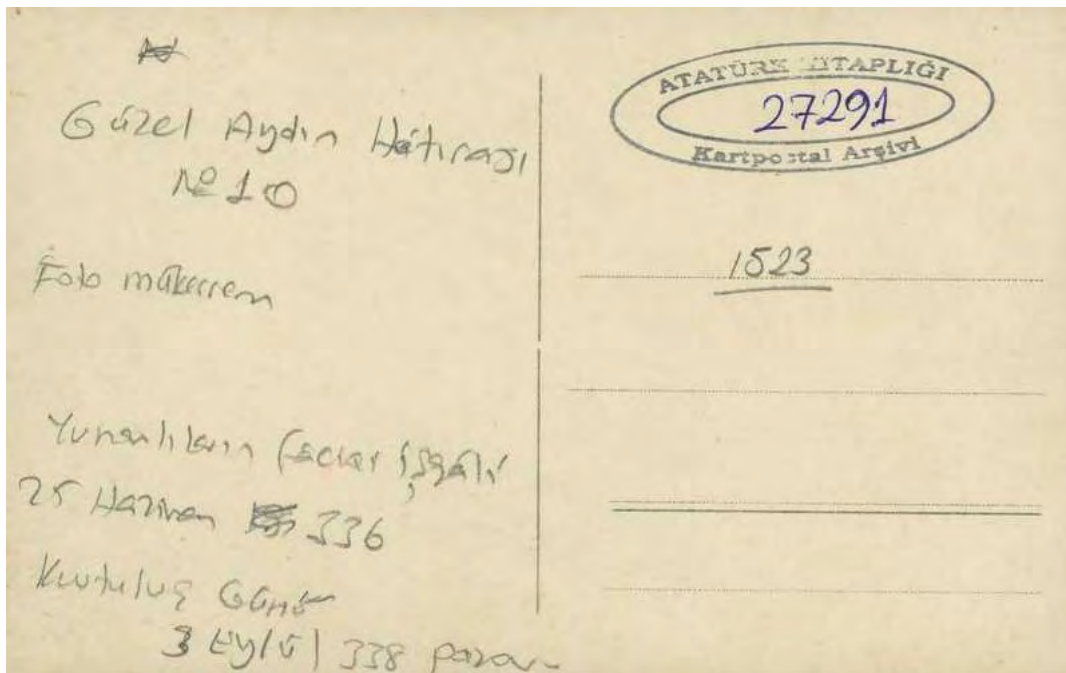 Güzel Aydın Hâtırası
№ 10
Foto mükerrem
Yunanlıların feciai işgâli
25 Haziran 336
Kurtuluş Günü
3 Eylül 338 pazar
ATATÜRK KİTAPLIĞI
27291
Kartpostal Arşivi
1523